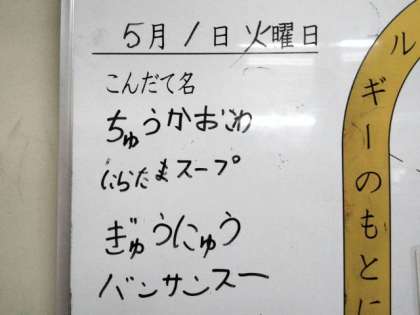 5月1日火曜日
こんだて名
ちゅうかおこわ
にらたまスープ
ぎゅうにゅう
バンサンスー
ルギーのもとに